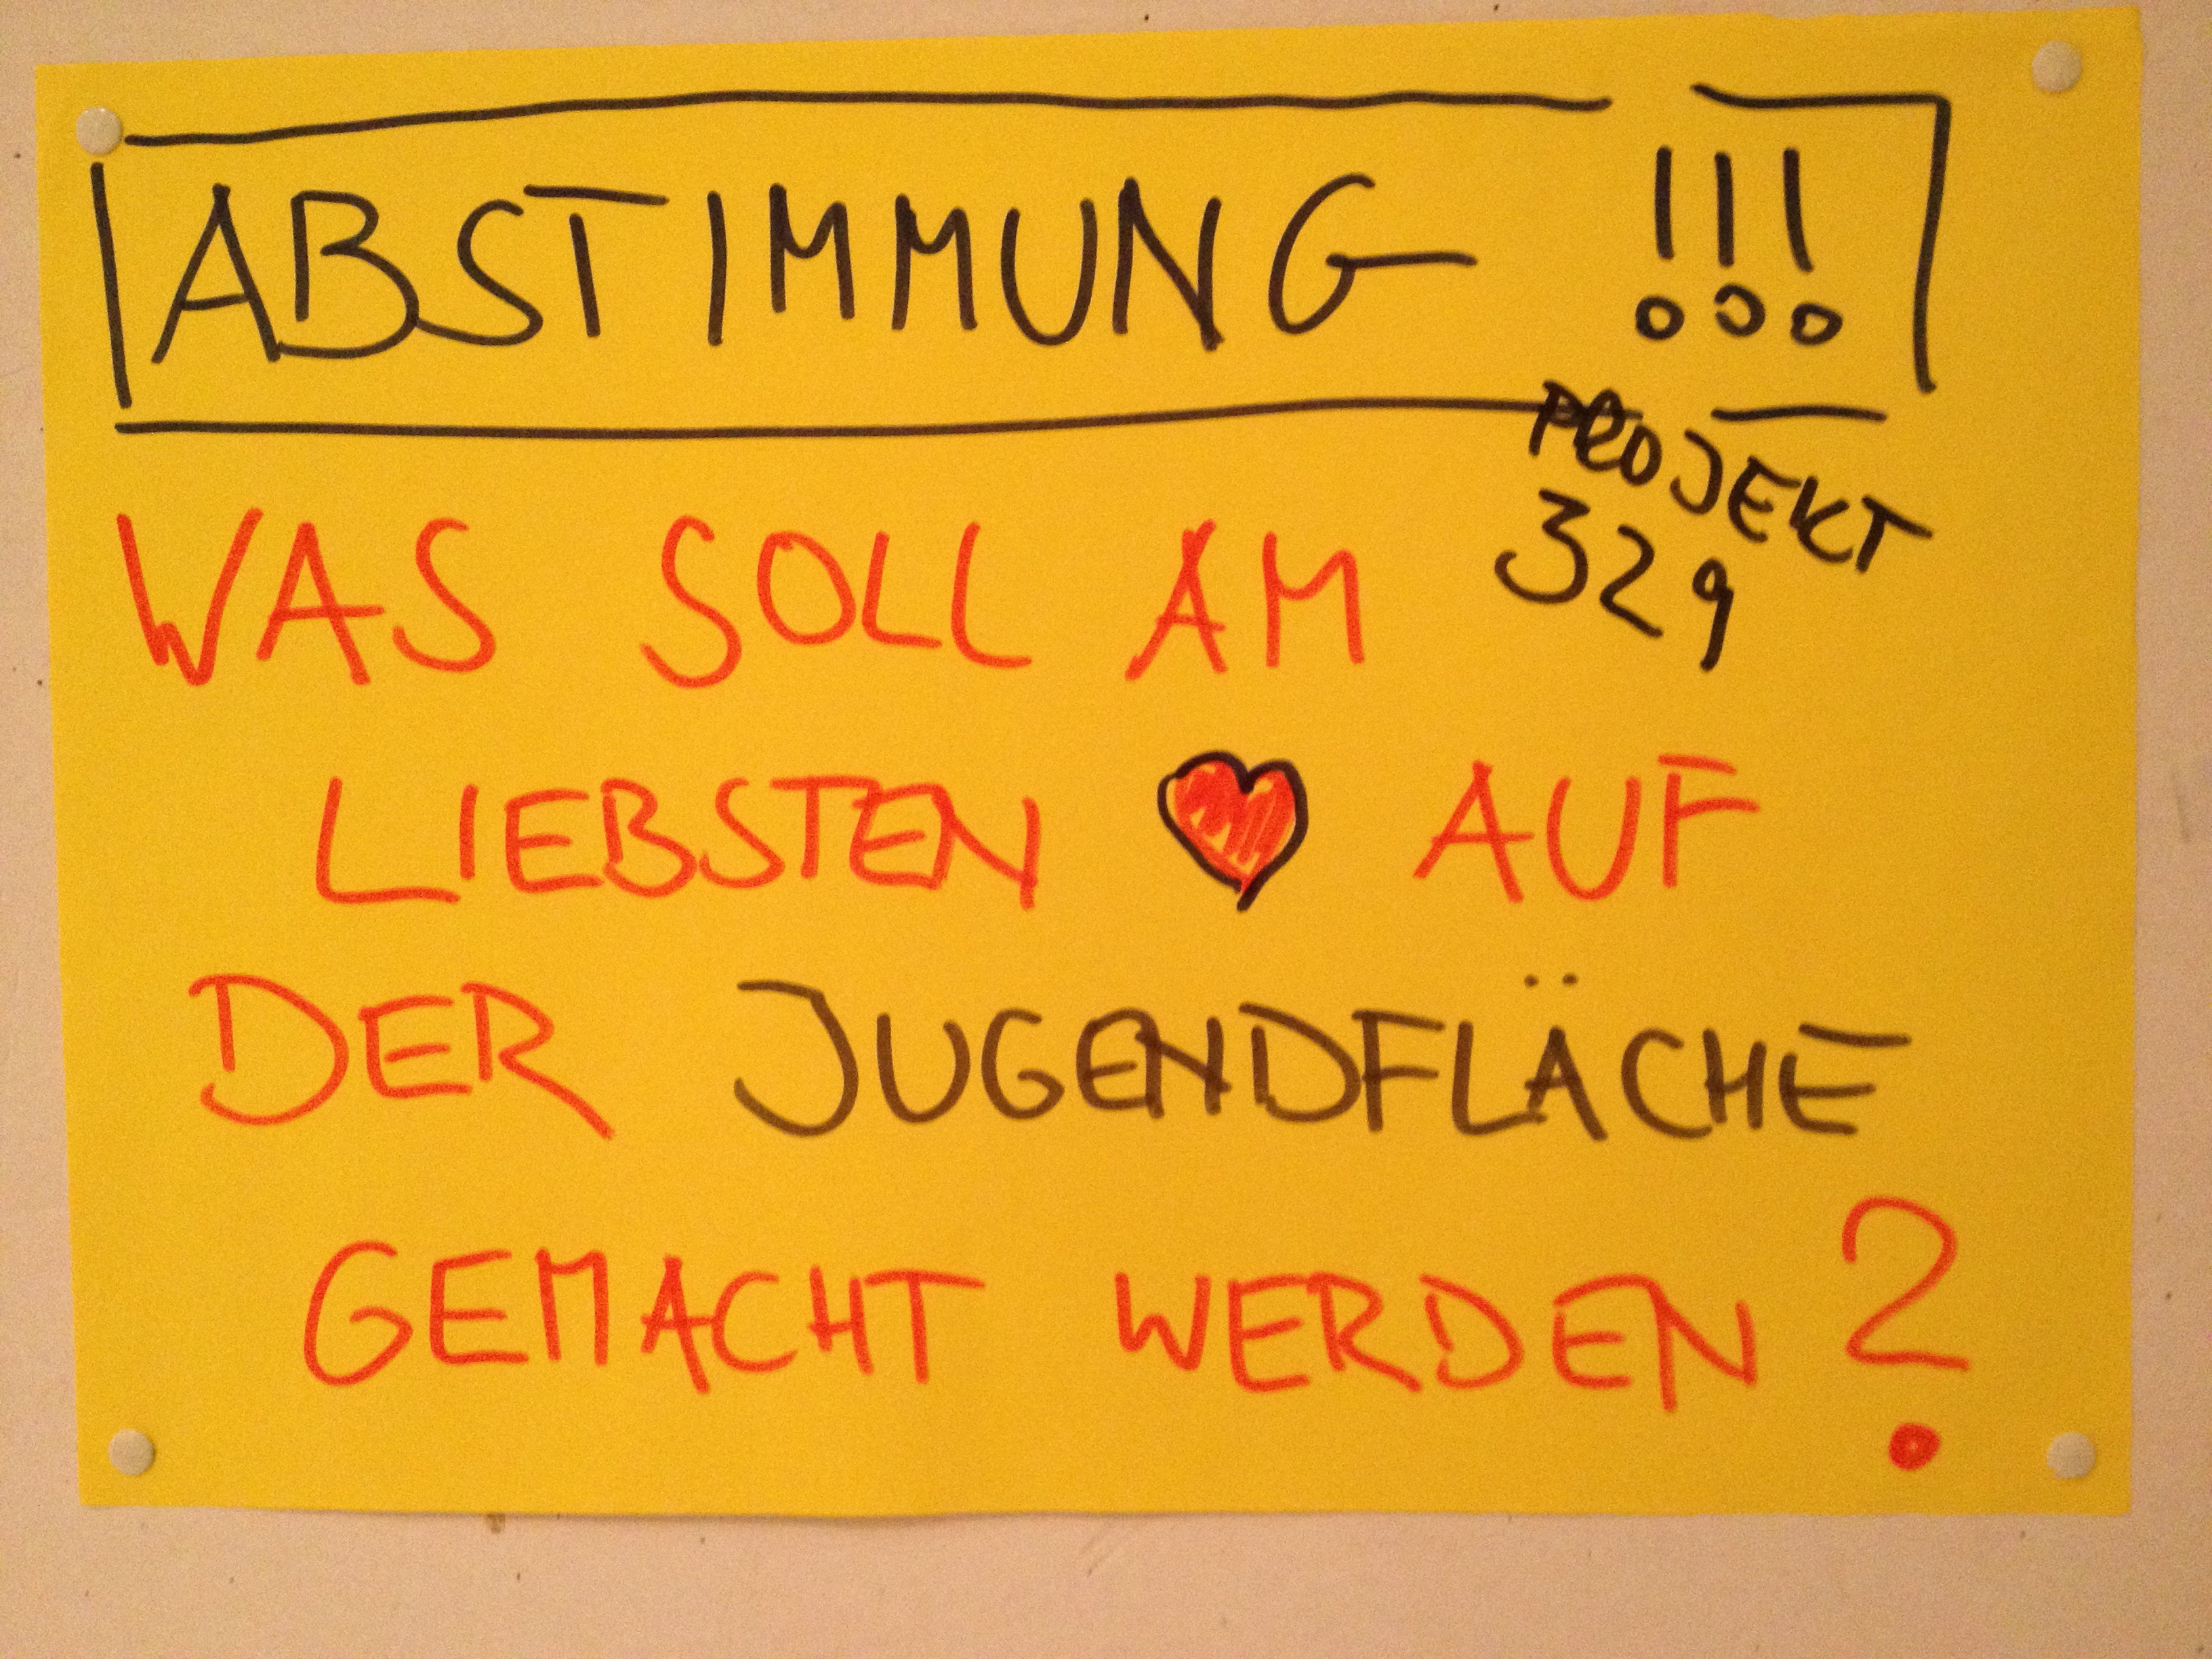 ABSTIMMUNG !!!
PROJEKT
329
WAS SOLL AM
LIEBSTEN ♥ AUF
DER JUGENDFLÄCHE
GEMACHT WERDEN ?